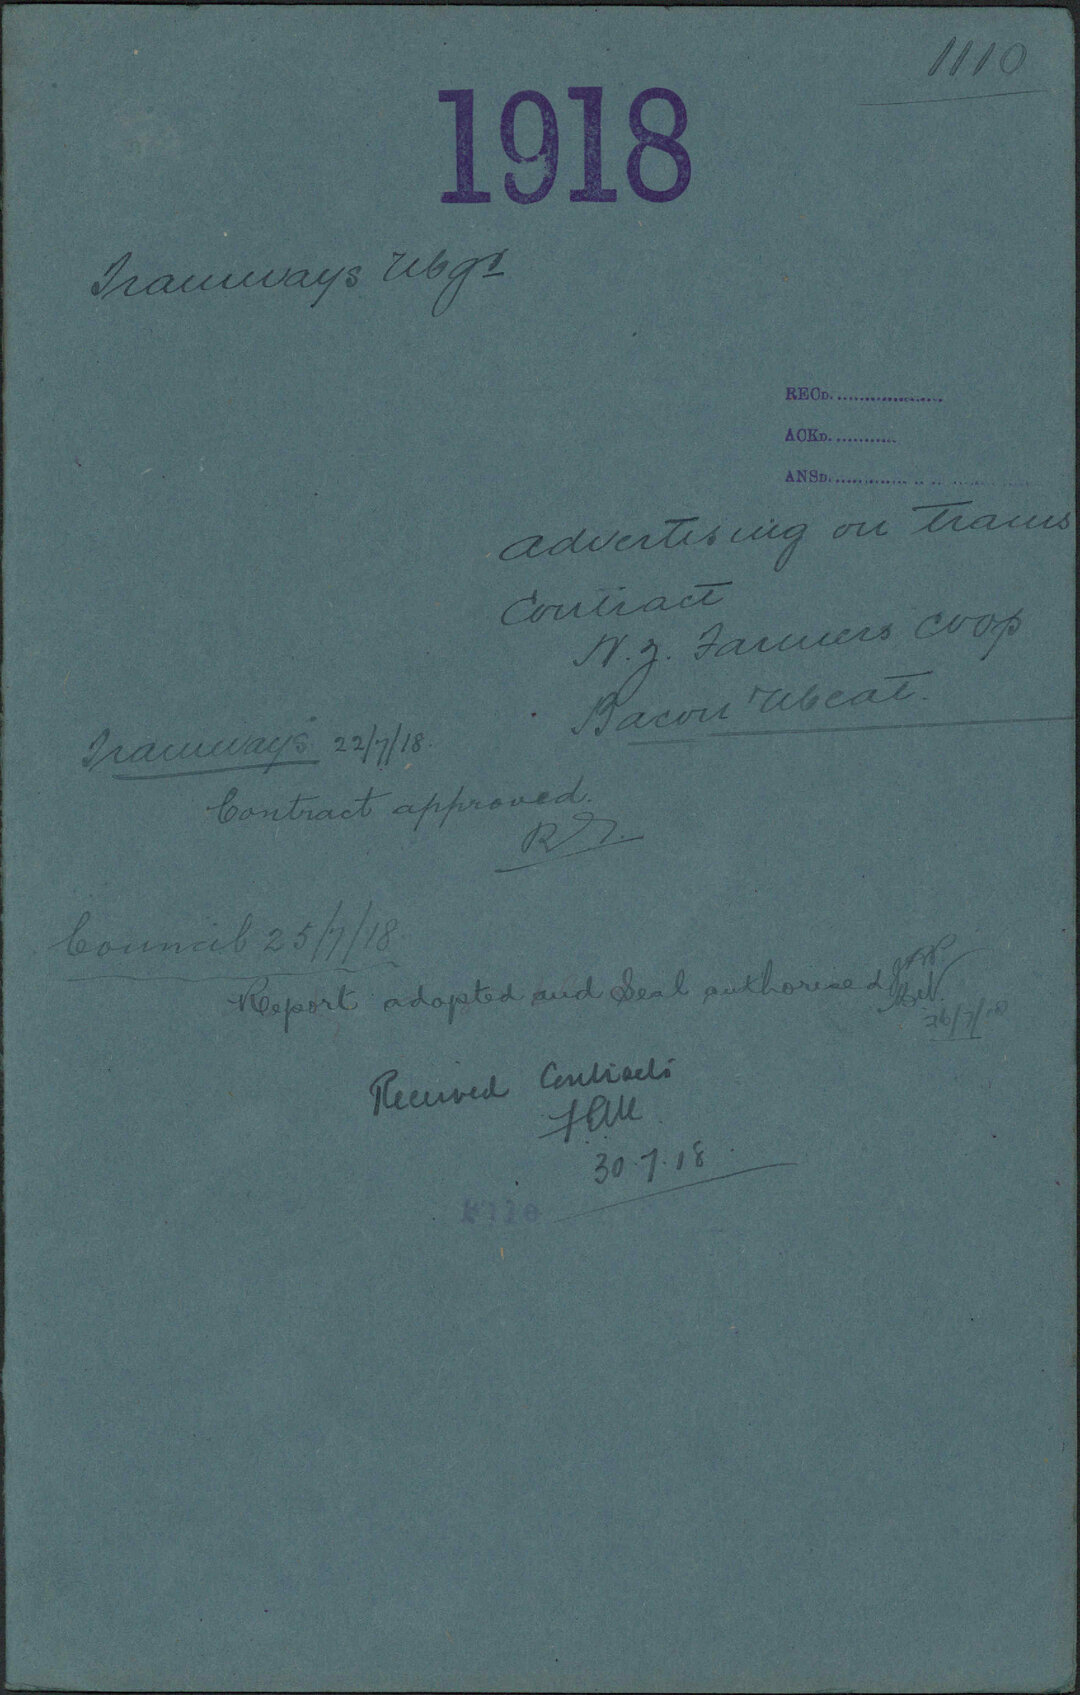 1110
1918
Tramways Mgr
RECD.
ACKD.
ANSD.
Advertising on trams
Contract
N.Z. Farmers Coop
Bacon & Meat.
Tramways 22/7/18.
Contract approved.
Council 25/7/18.
Report adopted and Seal authorised
26/7/18
Received Contracts
30.7.18